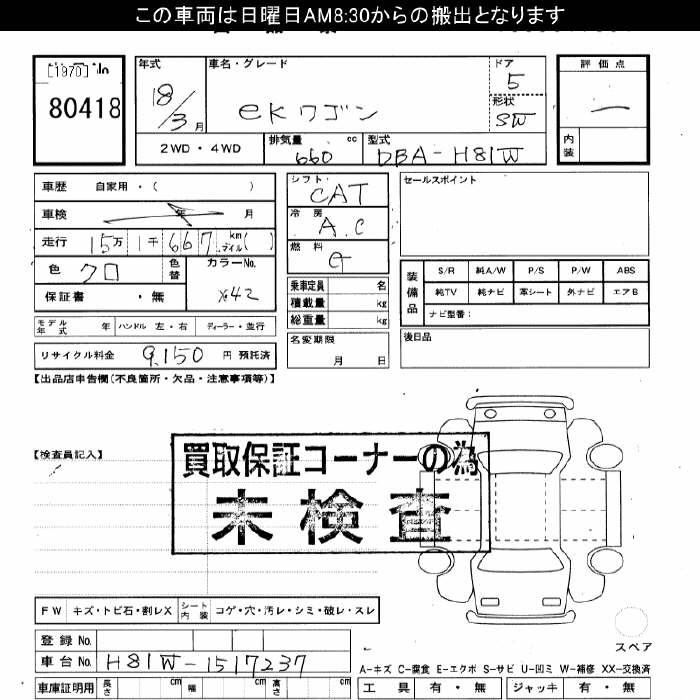 この車両は日曜日AM8:30からの搬出となります
[1970] No
80418
年式
18/3月
車名・グレード
eKワゴン
ドア
5
形状
SW
評価点
内装
2WD・4WD
排気量 cc
660
型式
DBA-H81W
車歴 自家用・( )
車検 年 月
走行 15万1千667 km マイル( )
色 クロ
色替
カラーNo.
X42
保証書 ・無
モデル年式 年 ハンドル 左・右 ディーラー・並行
リサイクル料金 9,150 円 預託済
シフト
CAT
冷房
A.C
燃料
G
乗車定員 名
積載量 kg
総重量 kg
名変期限
月 日
セールスポイント
装備品
S/R 純A/W P/S P/W ABS
純TV 純ナビ 革シート 外ナビ エアB
ナビ型番:
後日品
【出品店申告欄(不良箇所・欠品・注意事項等)】
【検査員記入】
買取保証コーナーの為
未検査
FW キズ・トビ石・割レX シート内装 コゲ・穴・汚レ・シミ・破レ・スレ
登録No.
車台No. H81W-1517237
車庫証明用 長さ cm 幅 cm 高さ cm
スペア
A-キズ C-腐食 E-エクボ S-サビ U-凹ミ W-補修 XX-交換済
工具 有・無 ジャッキ 有・無